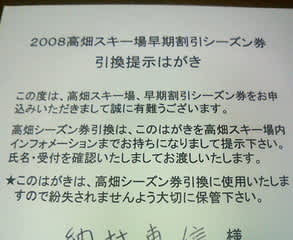 2008高畑スキー場早期割引シーズン券
引換提示はがき
この度は、高畑スキー場、早期割引シーズン券をお申
込みいただきまして誠に有難うございます。
高畑シーズン券引換は、このはがきを高畑スキー場内
インフォメーションまでお持ちになりまして提示下さい。
氏名・受付を確認いたしましてお渡しいたします。
★このはがきは、高畑シーズン券引換に使用いたしま
すので紛失されませんよう大切に保管下さい。
様